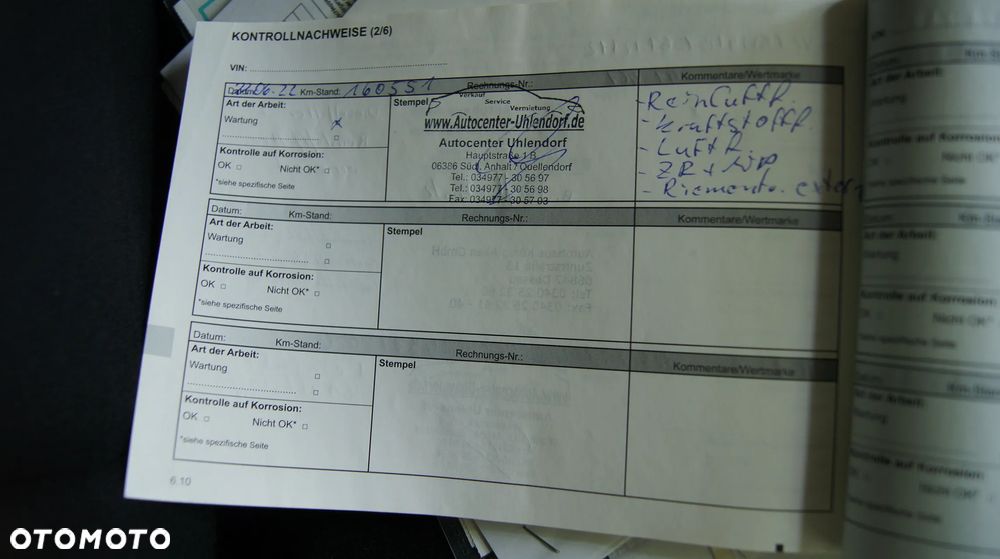 KONTROLLNACHWEISE (2/6)
VIN:
Datum: .06.22 Km-Stand: 160551 Rechnungs-Nr.: Kommentare/Wertmarke
Art der Arbeit:
Wartung
Kontrolle auf Korrosion:
OK Nicht OK*
*siehe spezifische Seite
Stempel
Verkauf
Service
Vermietung
www.Autocenter-Uhlendorf.de
Autocenter Uhlendorf
Hauptstraße 1B
06386 Südl. Anhalt / Quellendorf
Tel.: 034977 - 30 56 97
Tel.: 034977 - 30 56 98
Fax: 034977 - 30 57 03
- Reinluftf.
- Kraftstofff.
- Luftf.
- ZR + WP
- Riemen extern
Datum: Km-Stand: Rechnungs-Nr.: Kommentare/Wertmarke
Art der Arbeit:
Wartung
Kontrolle auf Korrosion:
OK Nicht OK*
*siehe spezifische Seite
Stempel
Datum: Km-Stand: Rechnungs-Nr.: Kommentare/Wertmarke
Art der Arbeit:
Wartung
Kontrolle auf Korrosion:
OK Nicht OK*
*siehe spezifische Seite
Stempel
6.10
OTOMOTO